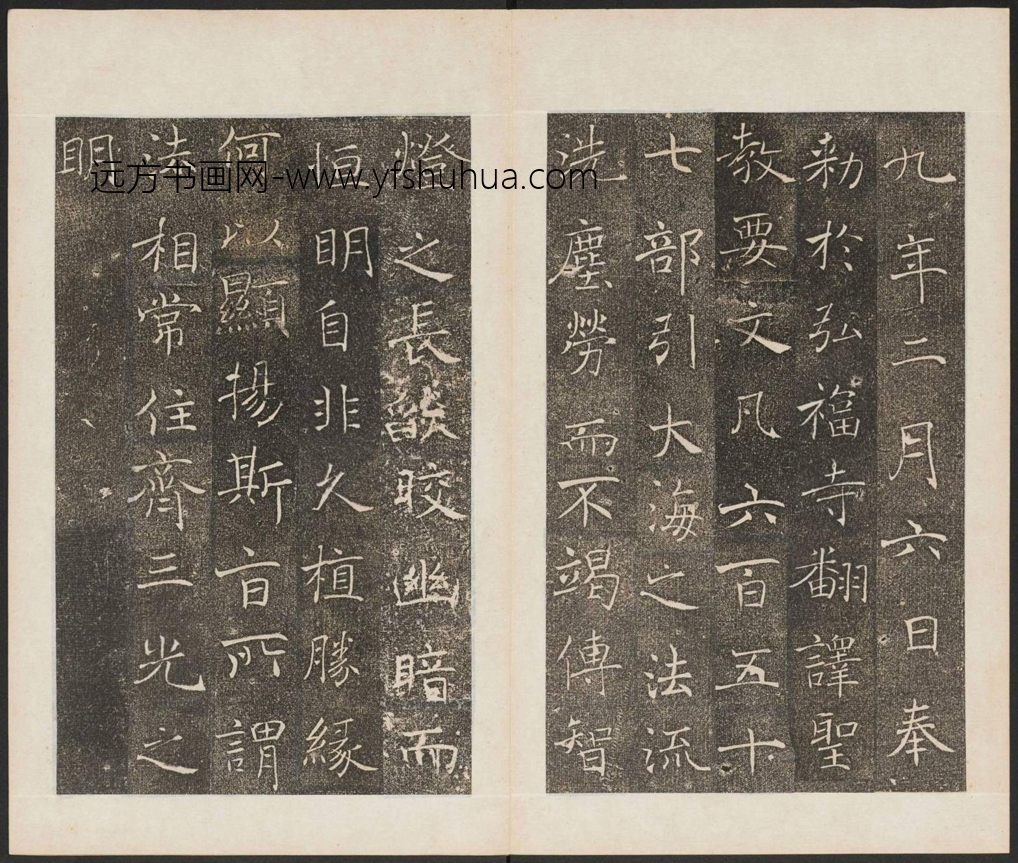 九年二月六日奉
勅於弘福寺翻譯聖
教要文凡六百五十
七部引大海之法流
洗塵勞而不竭傳智
燈之長燄皎幽暗而
恒明自非久植勝緣
何以顯揚斯旨所謂
法相常住齊三光之
明
远方书画网-www.yfshuhua.com